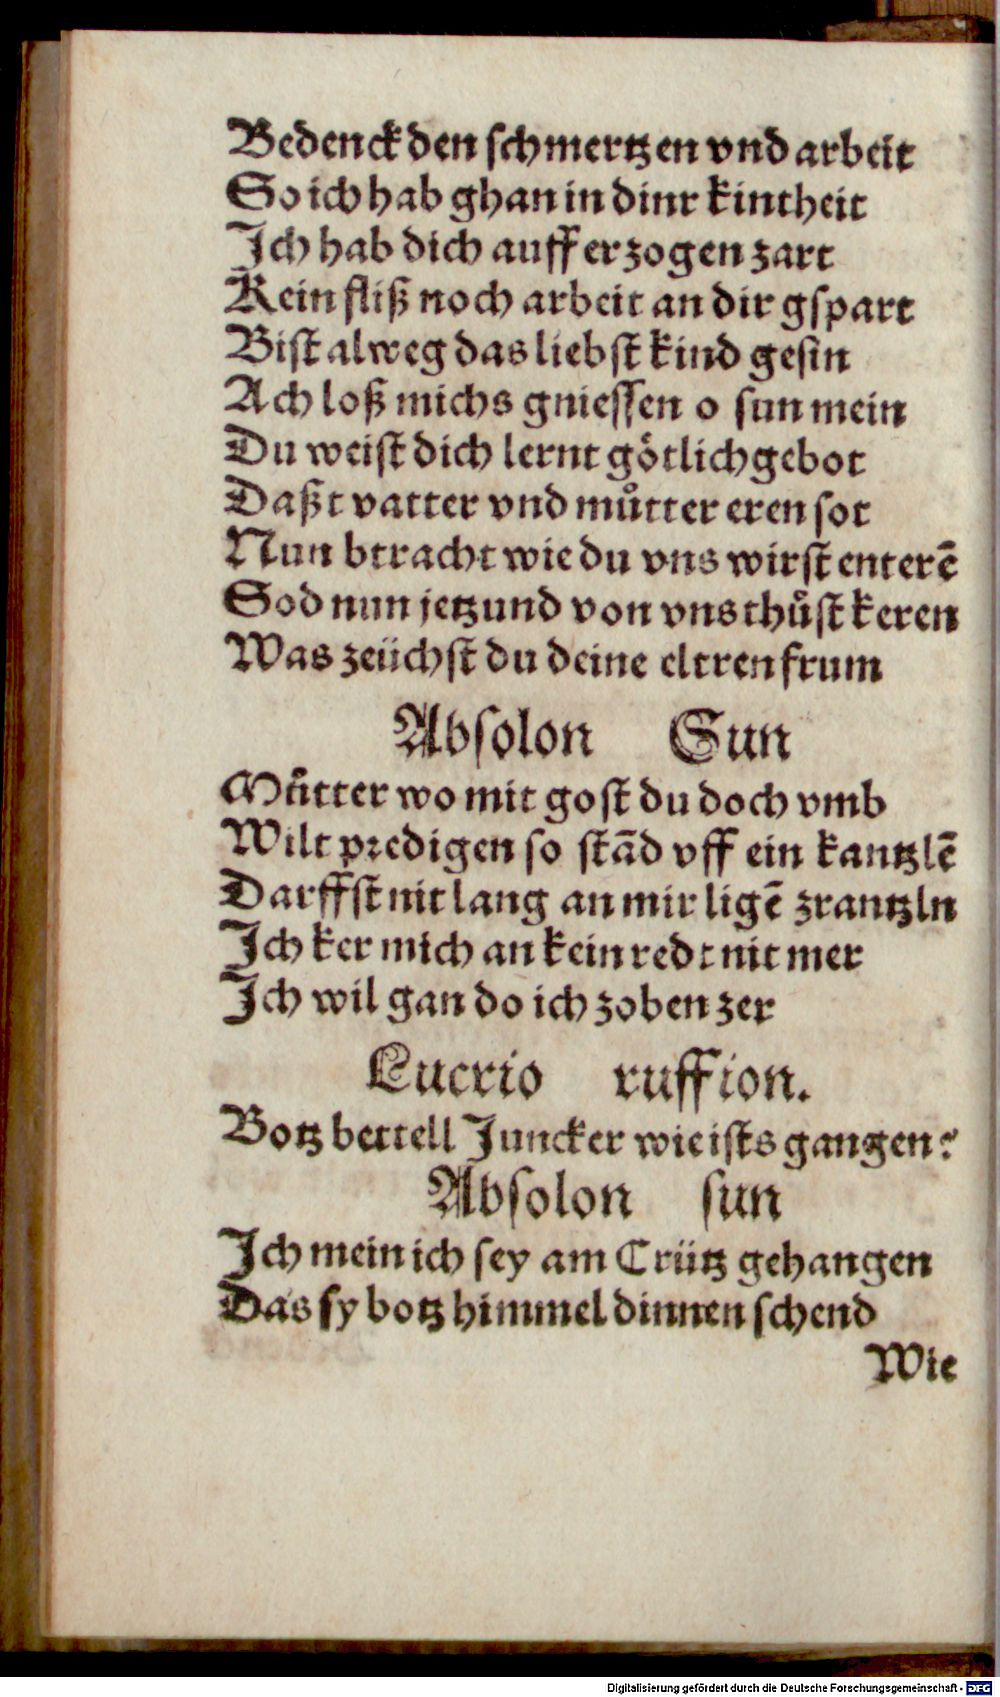 Bedenck den schmertzen vnd arbeit
So ich hab ghan in dinr kintheit
Ich hab dich auff erzogen zart
Kein fliß noch arbeit an dir gspart
Bist alweg das liebst kind gesin
Ach loß michs gniessen o sun mein
Du weist dich lernt götlich gebot
Daßt vatter vnd můtter eren sot
Nun btracht wie du vns wirst enterē
So d nun jetzund von vns thůst keren
Was zeüchst du deine eltren frum
Absolon Sun
Můtter wo mit gost du doch vmb
Wilt predigen so stād vff ein kantzlē
Darffst nit lang an mir ligē zrantzln
Ich ker mich an kein redt nit mer
Ich wil gan do ich zoben zer
Lucrio ruffion.
Botz bettell Juncker wie ists gangen?
Absolon sun
Ich mein ich sey am Crütz gehangen
Das sy botz himmel dinnen schend
Wie
Digitalisierung gefördert durch die Deutsche Forschungsgemeinschaft - DFG